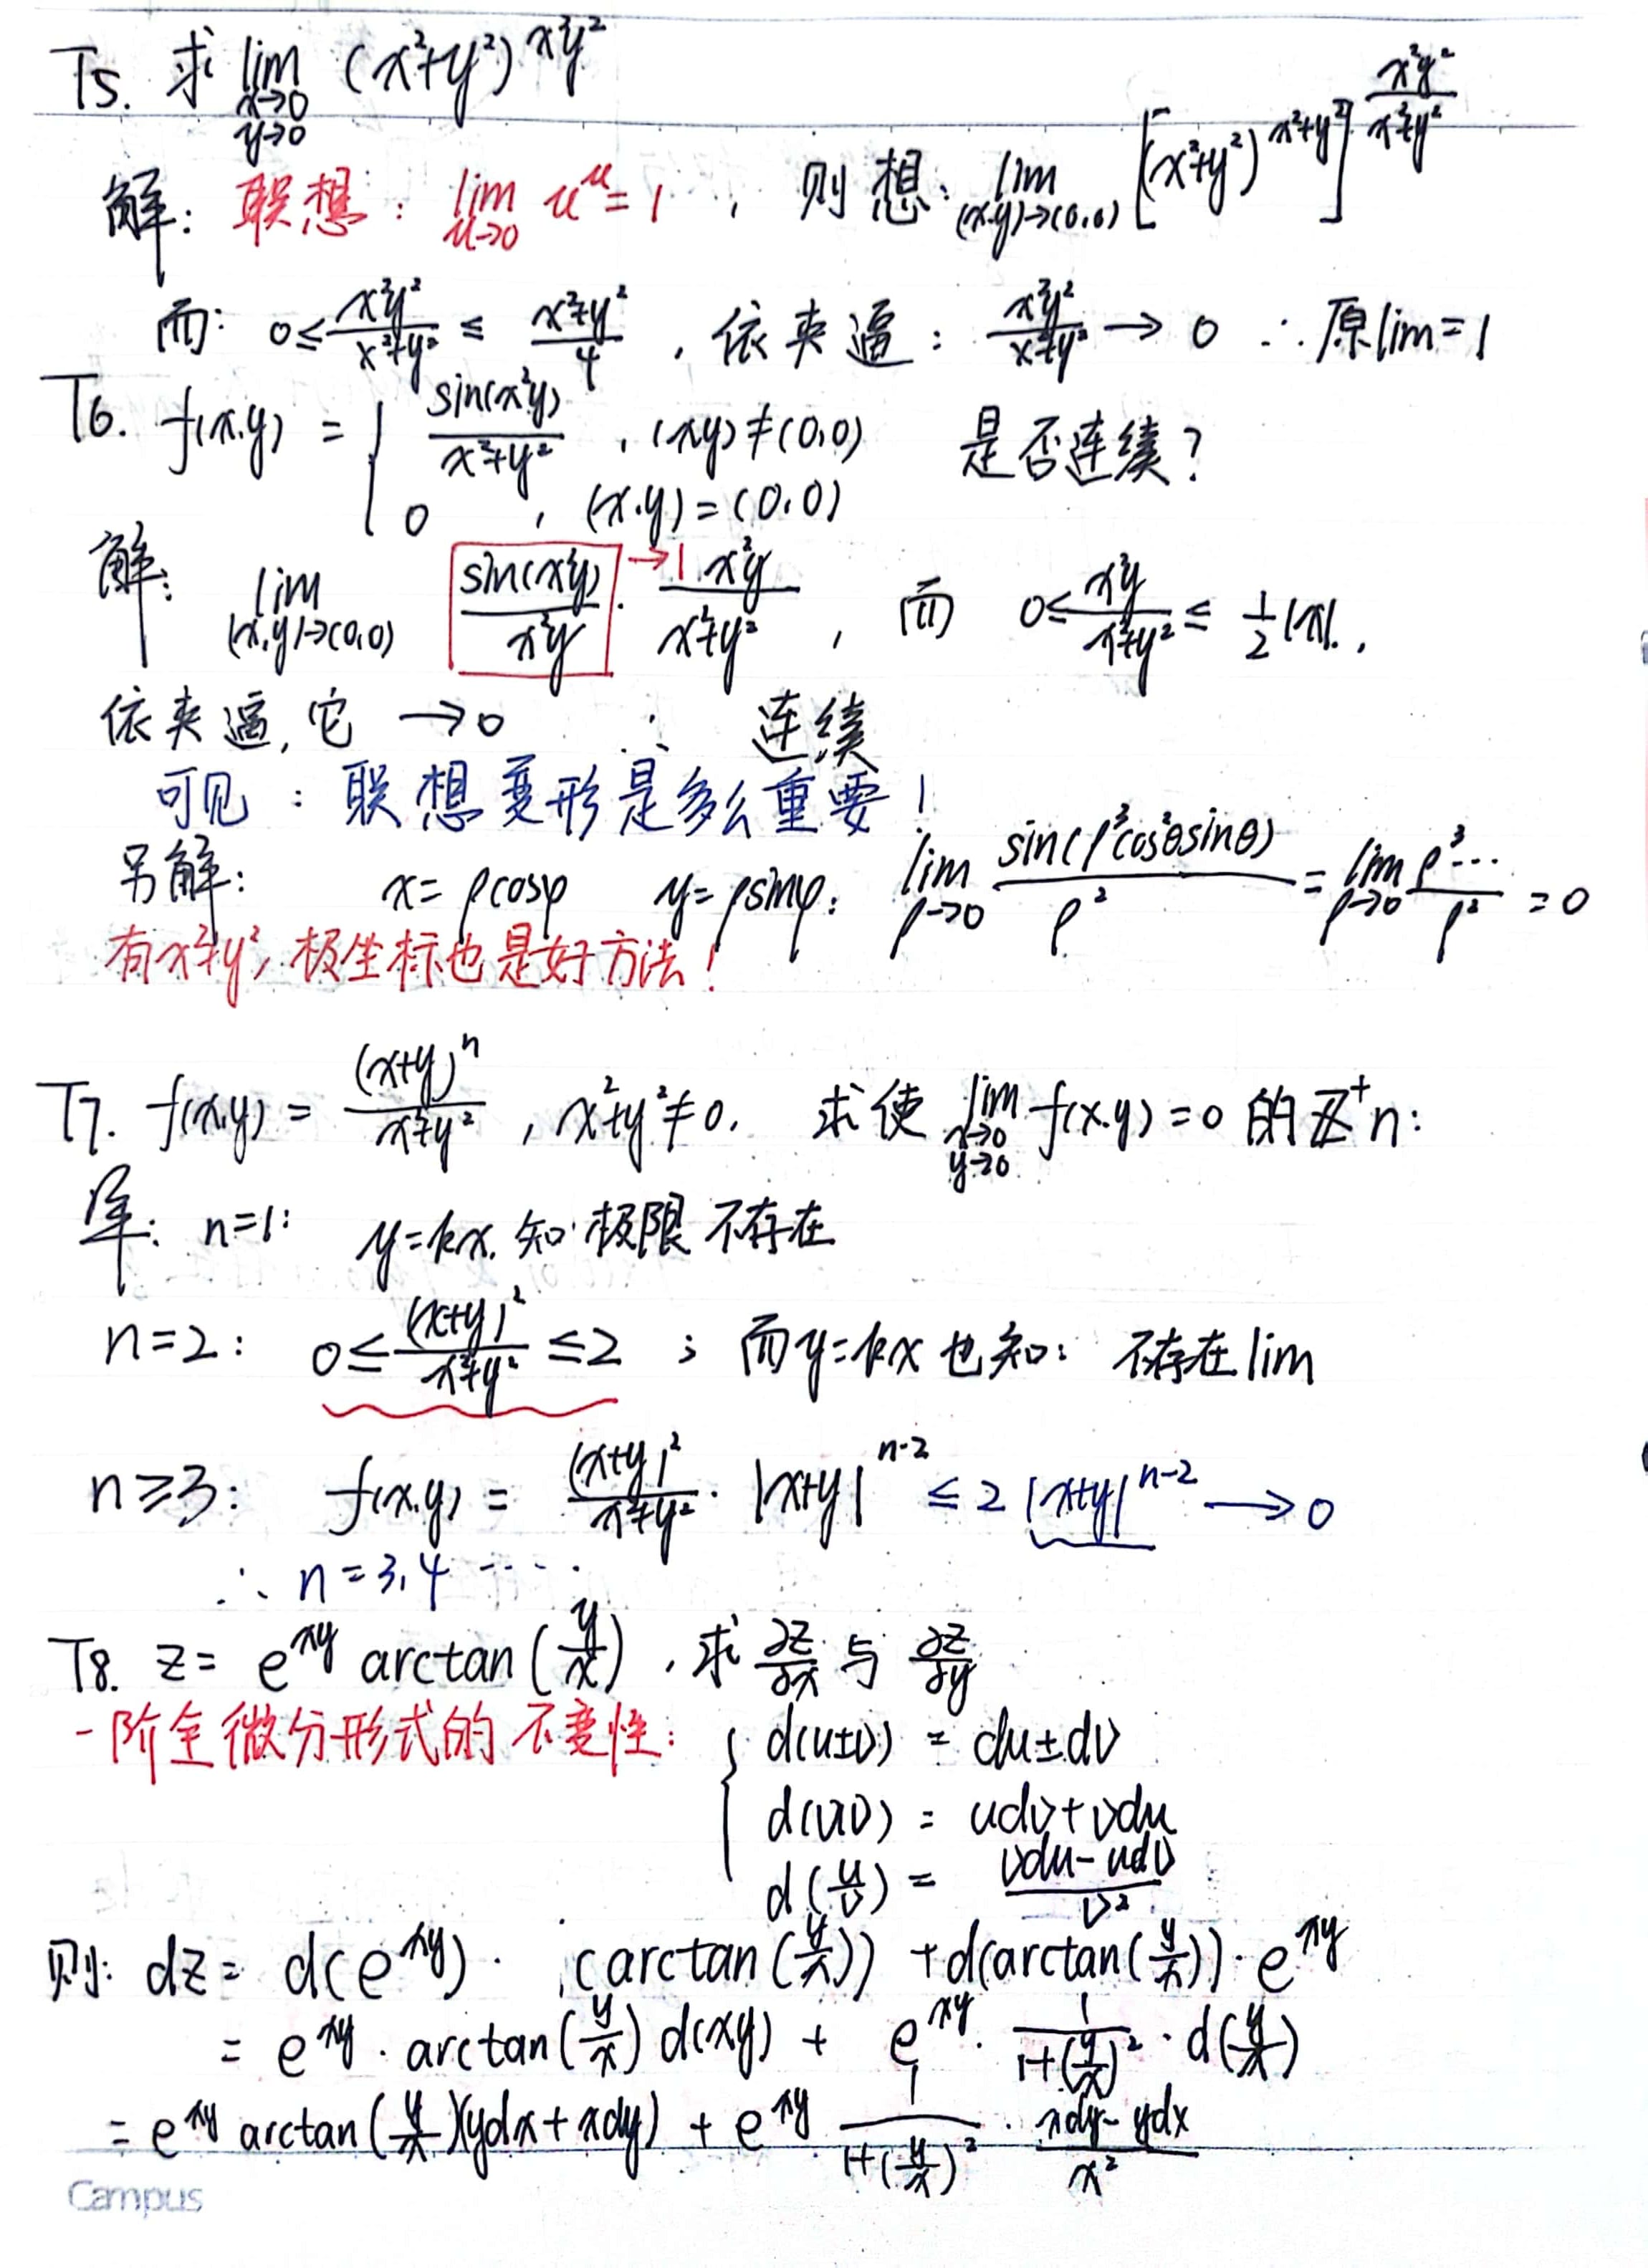 T5. 求 lim (x²+y²)^{x²y²}
x→0
y→0
解: 联想: lim_{u→0} u^u = 1 , 则想: lim_{(x,y)→(0,0)} [(x²+y²)^{x²+y²}]^{x²y²/(x²+y²)}
而: 0≤ x²y²/(x²+y²) ≤ (x²+y²)/4 , 依夹逼: x²y²/(x²+y²) → 0 ∴原lim=1
T6. f(x,y) = { sin(x²y)/(x²+y²) , (x,y)≠(0,0) 是否连续?
0 , (x,y)=(0,0)
解: lim_{(x,y)→(0,0)} sin(x²y)/(x²y) →1 · x²y/(x²+y²) , 而 0≤ x²y/(x²+y²) ≤ 1/2 |x|. ,
依夹逼, 它 →0 ∴ 连续
可见: 联想变形是多么重要!
另解: x=ρcosφ y=ρsinφ: lim_{ρ→0} sin(ρ³cos²θsinθ)/ρ² = lim_{ρ→0} ρ³…/ρ² = 0
有x²+y², 极坐标也是好方法!
T7. f(x,y) = (x+y)^n/(x²+y²) , x²+y²≠0. 求使 lim_{x→0 y→0} f(x,y)=0 的 Z⁺ n:
解: n=1: y=kx. 知极限不存在
n=2: 0≤ (x+y)²/(x²+y²) ≤2 ; 而y=kx也知: 不存在lim
n≥3: f(x,y) = (x+y)²/(x²+y²) · |x+y|^{n-2} ≤ 2 |x+y|^{n-2} → 0
∴ n=3,4 ……
T8. z= e^{xy} arctan(y/x) , 求 ∂z/∂x 与 ∂z/∂y
一阶全微分形式的不变性: { d(u±v) = du±dv
d(uv) = udv+vdu
d(u/v) = (vdu-udv)/v²
则: dz= d(e^{xy}) · (arctan(y/x)) + d(arctan(y/x)) · e^{xy}
= e^{xy} · arctan(y/x) d(xy) + e^{xy} · 1/(1+(y/x)²) · d(y/x)
= e^{xy} arctan(y/x)(ydx+xdy) + e^{xy} 1/(1+(y/x)²) · (xdy-ydx)/x²
Campus